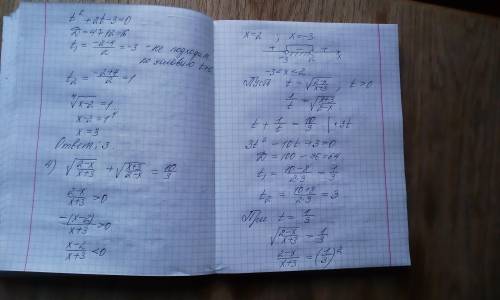 t² + 2t - 3 = 0
D = 4 + 12 = 16
t₁ = (-2-4)/2 = -3 - не подходит
по условию t>0
t₂ = (-2+4)/2 = 1
⁴√(x-2) = 1
x-2 = 1⁴
x = 3
Ответ: 3
4) √((2-x)/(x+3)) + √((x+3)/(2-x)) = 10/3
(2-x)/(x+3) > 0
-(x-2)/(x+3) > 0
(x-2)/(x+3) < 0
x=2 ; x=-3
+ - + x
-3 2
-3 < x < 2
Пусть t = √((2-x)/(x+3)), t>0
1/t = √((x+3)/(2-x))
t + 1/t = 10/3 | ·3t
3t² - 10t + 3 = 0
D = 100 - 36 = 64
t₁ = (10-8)/(2·3) = 1/3
t₂ = (10+8)/(2·3) = 3
При t = 1/3
√((2-x)/(x+3)) = 1/3
(2-x)/(x+3) = (1/3)²